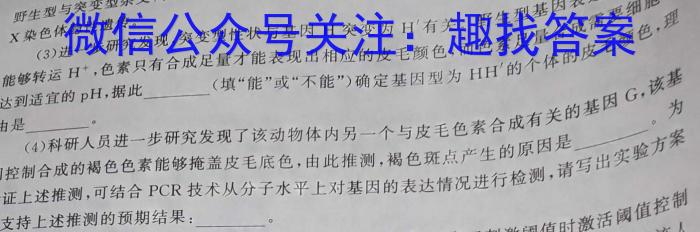 野生型与突变型杂交
X染色体
微信公众号关注：趣找答案
(3)进 研究发现 突变型性状 基因 突变为H′有关 野生型基因表达
能够转运H⁺,色素只有合成足量才能表现出相应的皮毛颜色 细胞
达到适宜的pH,据此________(填“能”或“不能”)确定基因型为HH′的个体的皮 颜色,理
由是________。
(4)科研人员进一步研究发现了该动物体内另一个与皮毛色素合成有关的基因G,该基
控制合成的褐色色素能够掩盖皮毛底色,由此推测,褐色斑点产生的原因是________。为
证上述推测,可结合PCR技术从分子水平上对基因的表达情况进行检测,请写出实验方案
支持上述推测的预期结果:________。
激阈值时激活阈值控制